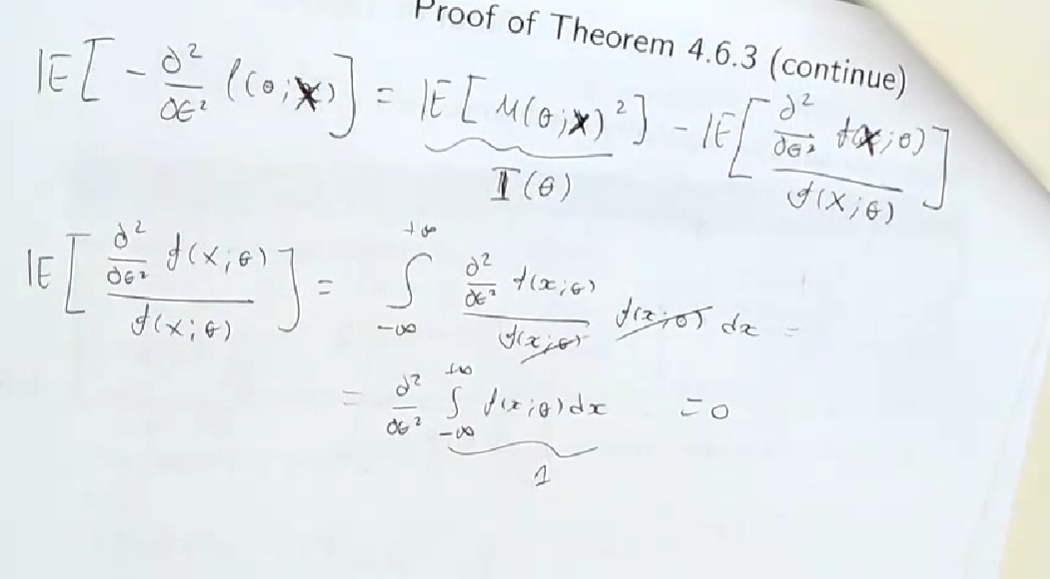 Proof of Theorem 4.6.3 (continue)
𝔼[ - ∂²/∂θ² ℓ(θ;X) ] = 𝔼[ u(θ;X)² ] - 𝔼[ ∂²/∂θ² f(X;θ) / f(X;θ) ]
I(θ)
𝔼[ ∂²/∂θ² f(X;θ) / f(X;θ) ] = ∫_{-∞}^{+∞} ∂²/∂θ² f(x;θ) / f(x;θ) f(x;θ) dx =
= ∂²/∂θ² ∫_{-∞}^{+∞} f(x;θ) dx = 0
1